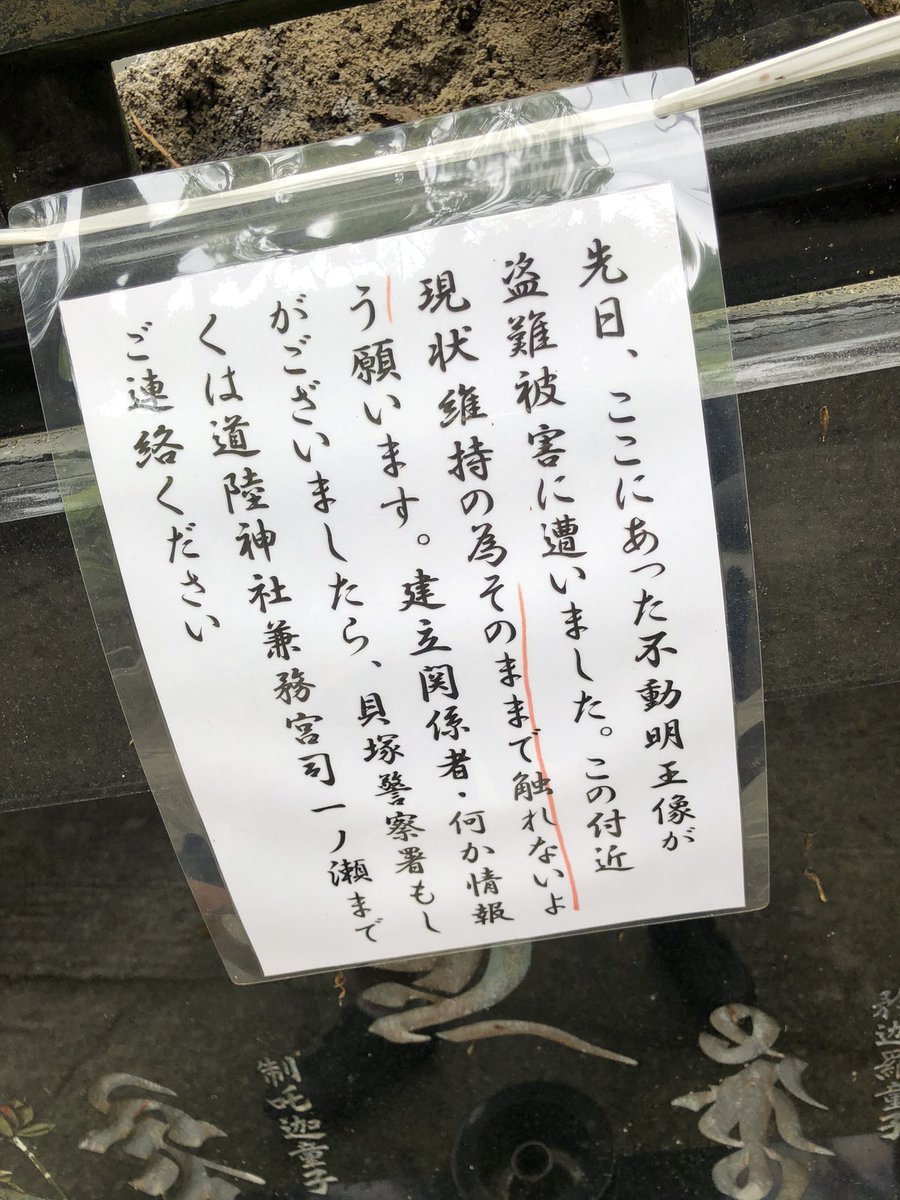 先日、ここにあった不動明王像が
盗難被害に遭いました。この付近
現状維持の為そのままで触れないよ
う願います。建立関係者・何か情報
がございましたら、貝塚警察署もし
くは道陸神社兼務宮司一ノ瀬まで
ご連絡ください
矜迦羅童子
制吒迦童子